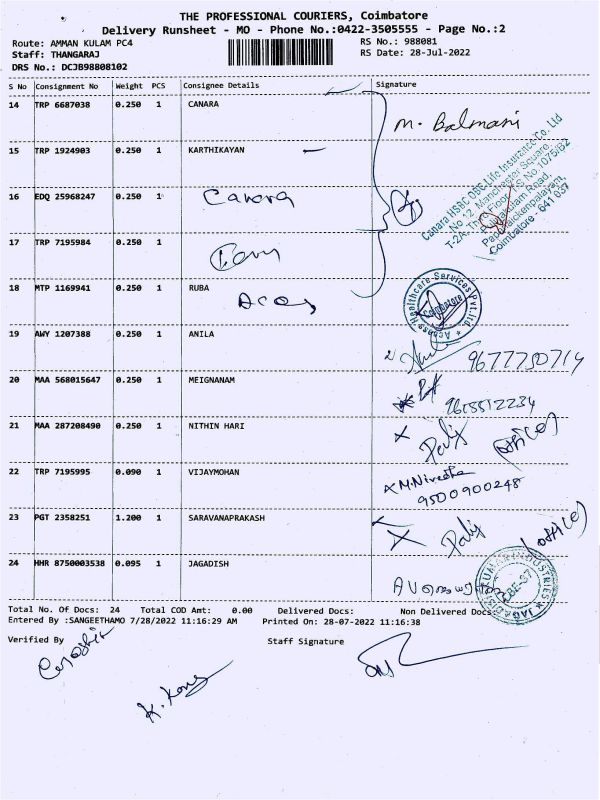 THE PROFESSIONAL COURIERS, Coimbatore
Delivery Runsheet - MO - Phone No.:0422-3505555 - Page No.:2
Route: AMMAN KULAM PC4 RS No.: 988081
Staff: THANGARAJ RS Date: 28-Jul-2022
DRS No.: DCJB98808102
S No Consignment No Weight PCS Consignee Details Signature
14 TRP 6687038 0.250 1 CANARA
M. Balmani
15 TRP 1924903 0.250 1 KARTHIKAYAN
Canara HSBC OBC Life Insurance Co. Ltd
No 12, Manchester Square,
Pappanaickenpalayam,
Coimbatore - 641 037
16 EDQ 25968247 0.250 1 Canara
17 TRP 7195984 0.250 1
18 MTP 1169941 0.250 1 RUBA
Access Healthcare Services Pvt. Ltd. Coimbatore
19 AWY 1207388 0.250 1 ANILA
9677750714
20 MAA 568015647 0.250 1 MEIGNANAM
9655512234
21 MAA 287208490 0.250 1 NITHIN HARI
22 TRP 7195995 0.090 1 VIJAYMOHAN
M. Nivedha
9500900248
23 PGT 2358251 1.200 1 SARAVANAPRAKASH
24 HHR 8750003538 0.095 1 JAGADISH
Total No. Of Docs: 24 Total COD Amt: 0.00 Delivered Docs: Non Delivered Docs:
Entered By :SANGEETHAMO 7/28/2022 11:16:29 AM Printed On: 28-07-2022 11:16:38
Verified By Staff Signature